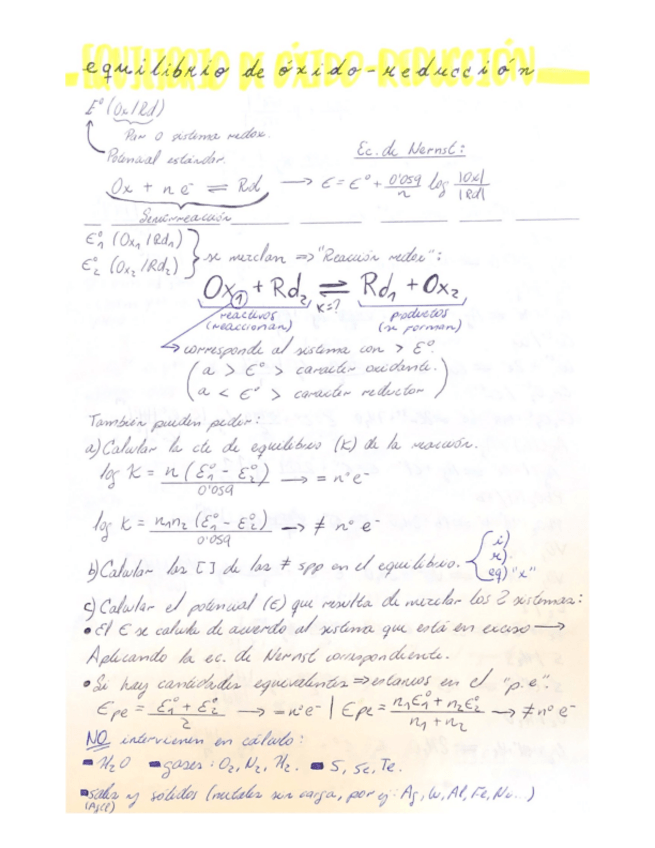 EQUILIBRIO DE ÓXIDO-REDUCCIÓN
equilibrio de óxido-reducción
E° (Ox/Rd)
Par o sistema redox.
Potencial estándar.
Ec. de Nernst:
Ox + n e⁻ ⇌ Rd → E = E° + 0'059/n log |Ox|/|Rd|
Semirreacción
E°₁ (Ox₁/Rd₁)
E°₂ (Ox₂/Rd₂) } se mezclan ⇒ "Reacción redox":
Ox₁ + Rd₂ ⇌ Rd₁ + Ox₂
K=?
reactivos productos
(reaccionan) (se forman)
→ corresponde al sistema con > E°.
(a > E° > carácter oxidante.
a < E° > carácter reductor)
También pueden pedir:
a) Calcular la cte de equilibrio (K) de la reacción.
log K = n (E°₁ - E°₂)/0'059 → = n° e⁻
log K = n₁n₂ (E°₁ - E°₂)/0'059 → ≠ n° e⁻
b) Calcular las [ ] de las ≠ spp en el equilibrio. { i) r) eq) "x"
c) Calcular el potencial (E) que resulta de mezclar los 2 sistemas:
• El E se calcula de acuerdo al sistema que está en exceso →
Aplicando la ec. de Nernst correspondiente.
• Si hay cantidades equivalentes ⇒ estamos en el "p.e".
Epe = E°₁ + E°₂/2 → = n° e⁻ | Epe = n₁E°₁ + n₂E°₂/n₁ + n₂ → ≠ n° e⁻
NO intervienen en cálculo:
- H₂O - gases: O₂, N₂, H₂. - S, Se, Te.
- sales y sólidos (metales sin carga, por ej: Ag, Cu, Al, Fe, Na...)
(AgCl)